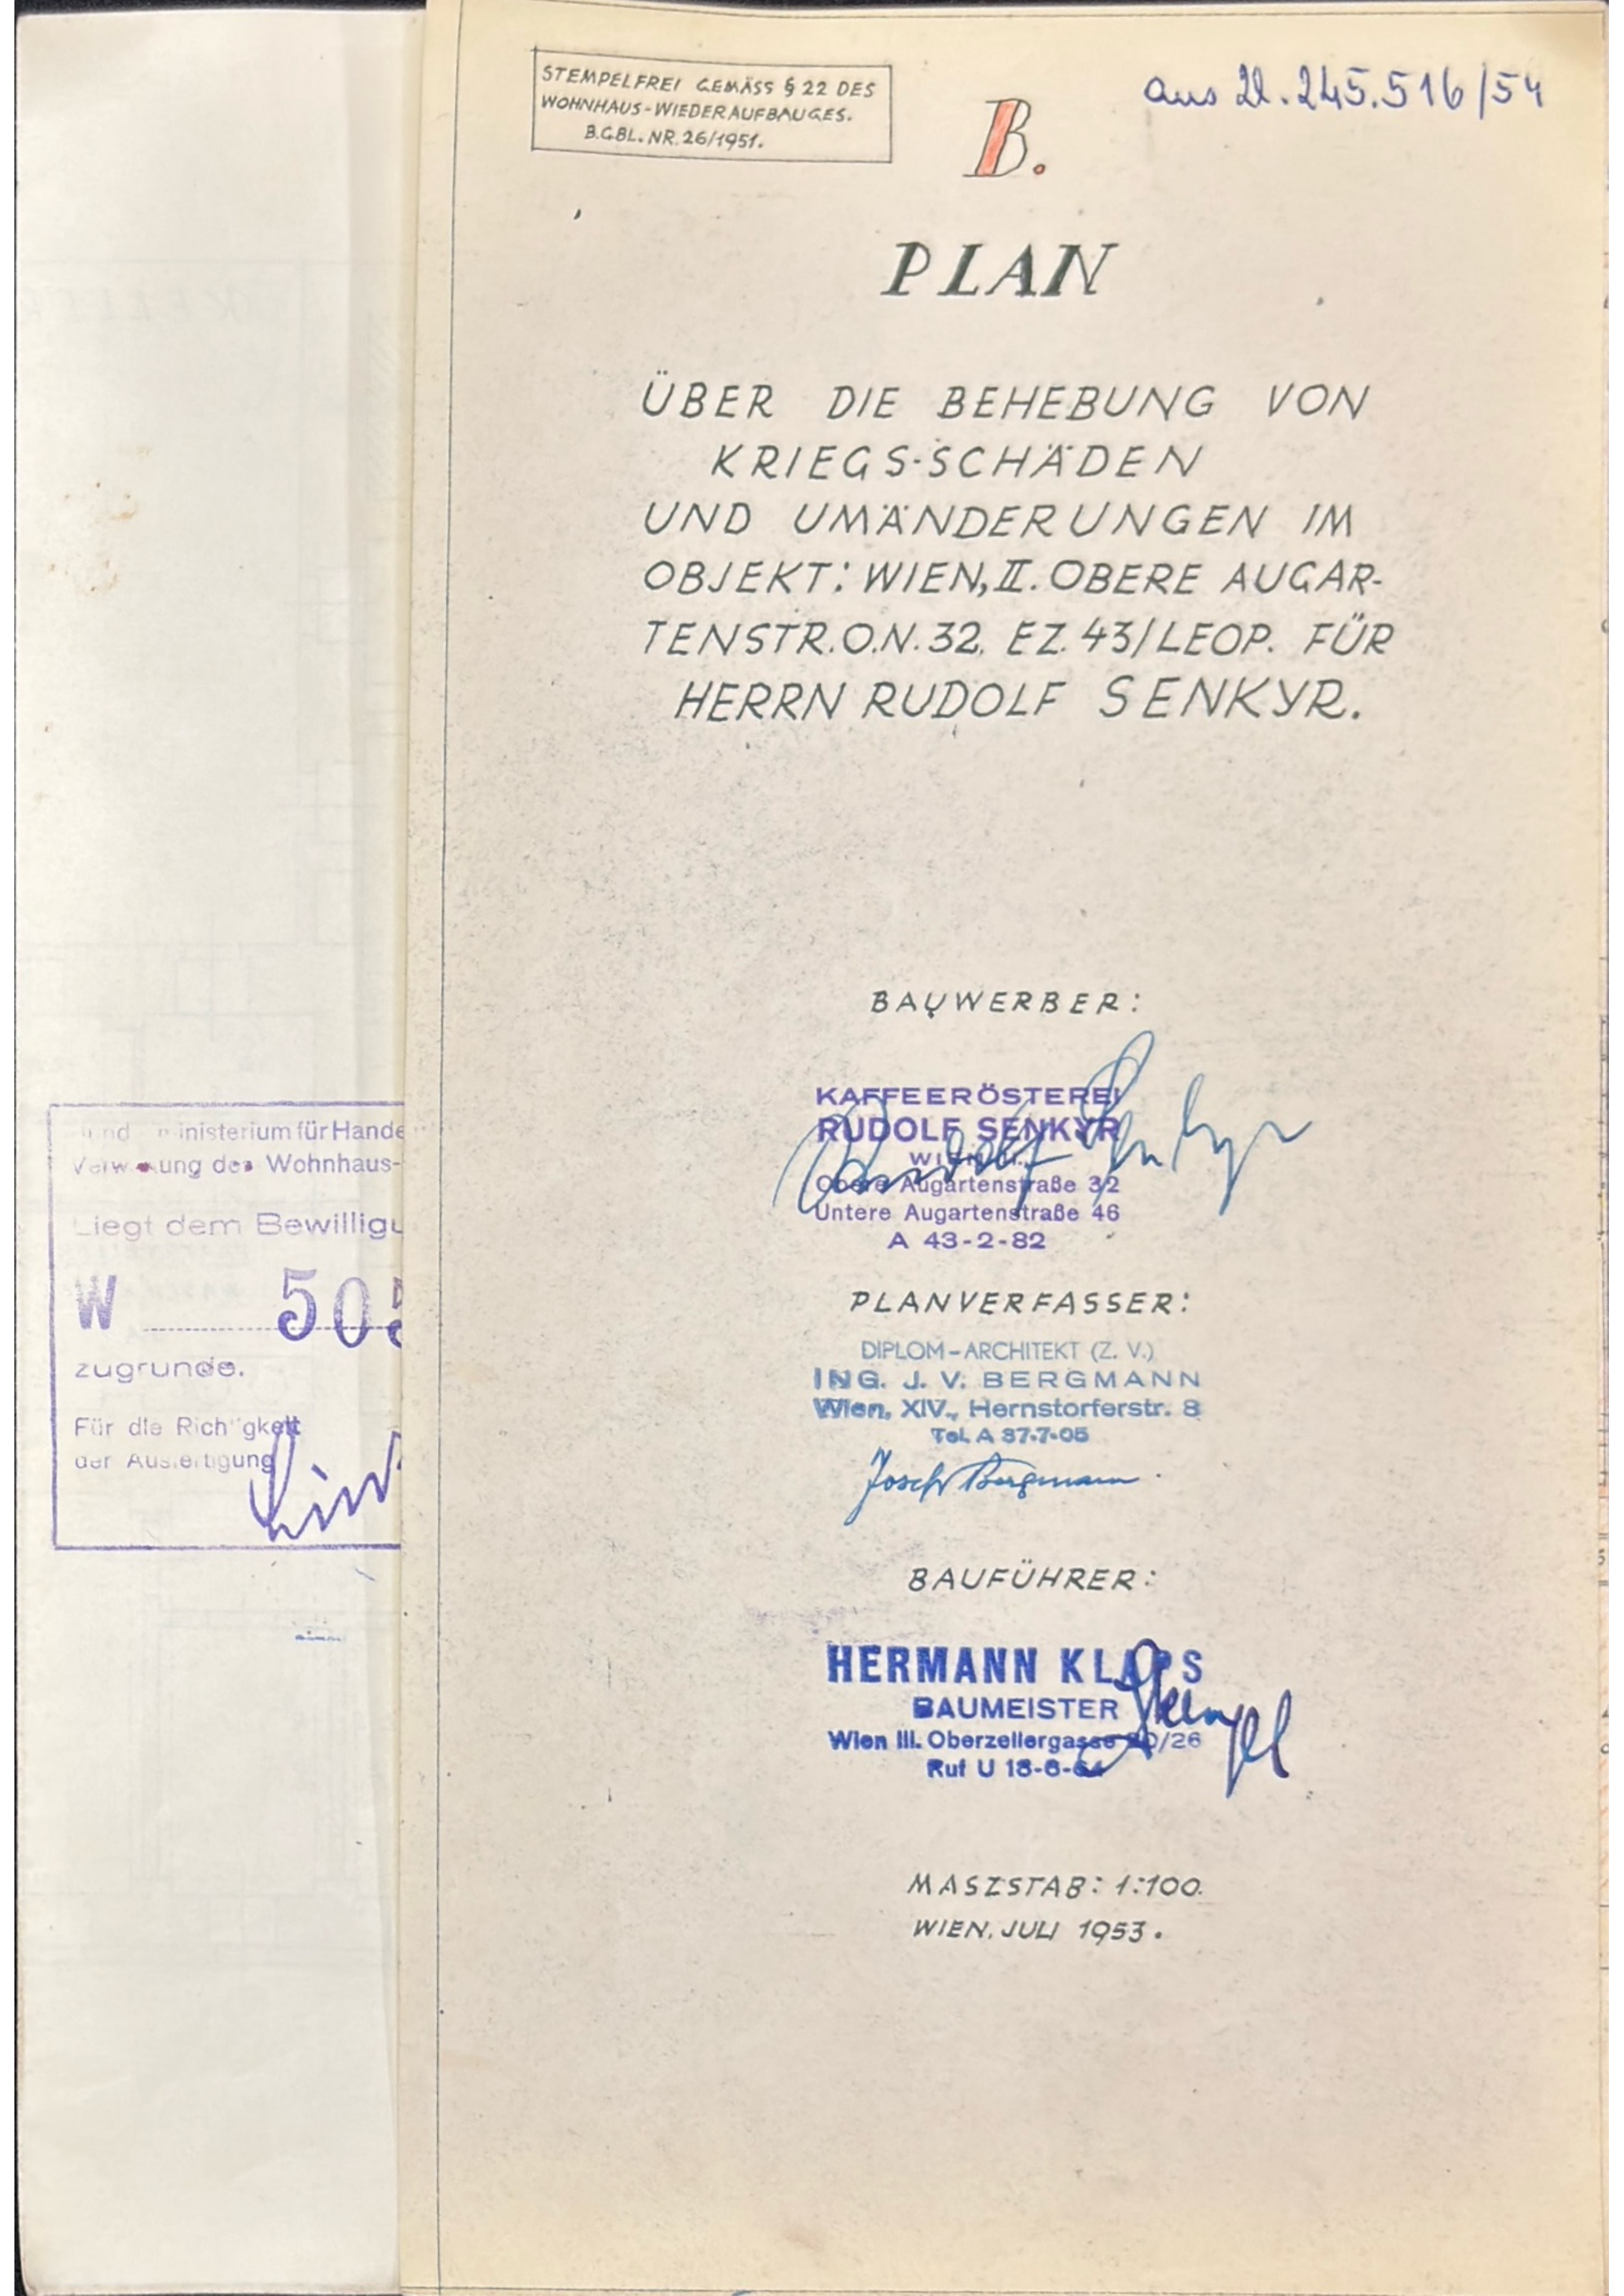 STEMPELFREI GEMÄSS § 22 DES
WOHNHAUS-WIEDERAUFBAUGES.
B.G.BL. NR. 26/1951.
aus Zl. 245.516/54
B.
PLAN
ÜBER DIE BEHEBUNG VON
KRIEGS-SCHÄDEN
UND UMÄNDERUNGEN IM
OBJEKT: WIEN, II. OBERE AUGAR-
TENSTR. O.N. 32. EZ. 43/LEOP. FÜR
HERRN RUDOLF SENKYR.
BAUWERBER:
KAFFEERÖSTEREI
RUDOLF SENKYR
WIEN II.
Obere Augartenstraße 32
Untere Augartenstraße 46
A 43-2-82
Rudolf Senkyr
PLANVERFASSER:
DIPLOM-ARCHITEKT (Z. V.)
ING. J. V. BERGMANN
Wien, XIV., Hernstorferstr. 8
Tel. A 37-7-05
Josef Bergmann
BAUFÜHRER:
HERMANN KLAPS
BAUMEISTER
Wien III. Oberzellergasse /26
Ruf U 18-6-64
MASZSTAB: 1:100.
WIEN, JULI 1953.
ministerium für Hande
des Wohnhaus-
Liegt dem Bewilligu
W 505
zugrunde.
Für die Richtigkeit
der Ausfertigung